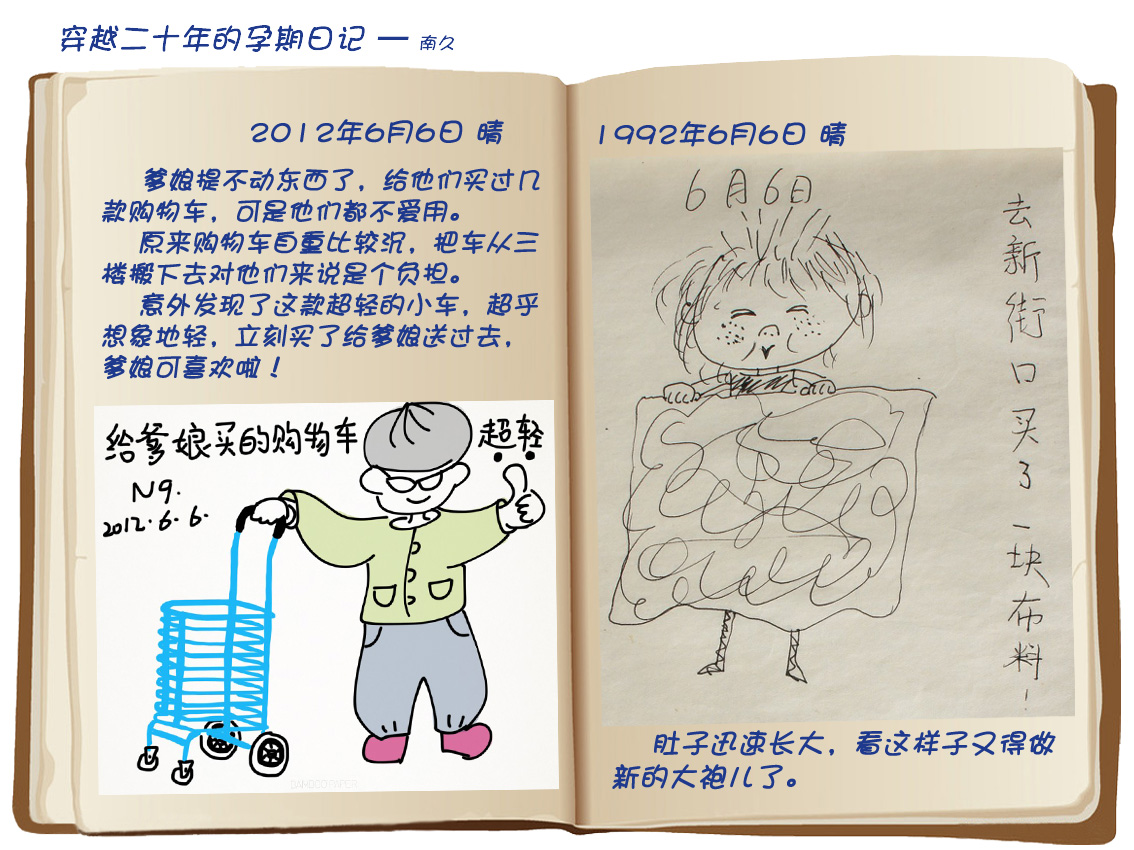 穿越二十年的孕期日记 — 南久
2012年6月6日 晴
爹娘提不动东西了，给他们买过几
款购物车，可是他们都不爱用。
原来购物车自重比较沉，把车从三
楼搬下去对他们来说是个负担。
意外发现了这款超轻的小车，超乎
想象地轻，立刻买了给爹娘送过去，
爹娘可喜欢啦！
给爹娘买的购物车 超轻
N9.
2012.6.6.
1992年6月6日 晴
6月6日
去新街口买了一块布料！
肚子迅速长大，看这样子又得做
新的大袍儿了。